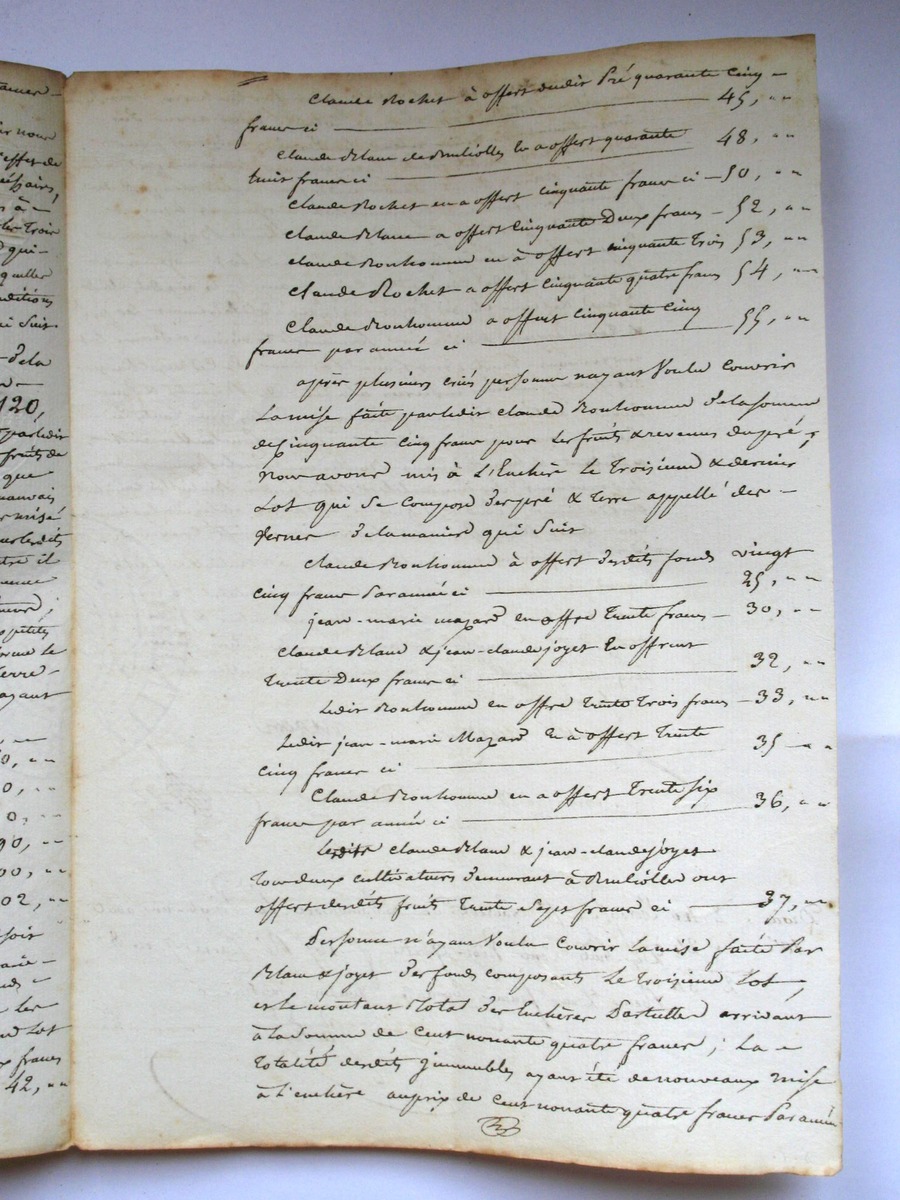 Claude Rochet à offert dudit Pré quarante Cinq
francs ci — 45, " "
Claude Blanc de Bruliolles En a offert quarante
huit francs ci — 48, " "
Claude Rochet en a offert Cinquante francs ci — 50, " "
Claude Blanc a offert Cinquante Deux francs — 52, " "
Claude Bonhomme en à offert cinquante Trois 53, " "
Claude Rochet a offert Cinquante quatre francs 54, " "
Claude Bonhomme a offert Cinquante Cinq
francs par année ci — 55, " "
après plusieurs criés personne nayant Voulu Couvrir
La mise faite par ledit Claude Bonhomme De la somme
de Cinquante Cinq francs pour Les fruits & revenus du pré ;
Nous avons mis à L'Enchère Le Troisieme & dernier
Lot qui Se Compose Des pré & Terre appellé des
Vernes De la maniere qui Suit
Claude Bonhomme à offert Desdits fonds vingt
Cinq francs Par année ci — 25, " "
jean-marie mazard en offre Trente francs — 30, " "
Claude Blanc & jean-claude joyet En offrent
Trente Deux francs ci — 32, " "
Ledit Bonhomme en offre Trente Trois francs — 33, " "
Ledit jean-marie Mazard En à offert Trente
Cinq francs ci — 35 " "
Claude Bonhomme en a offert Trente Six
francs par année ci — 36, " "
Lesdits Claude Blanc & jean-claude joyet
Tous deux cultivateurs Demeurant à Bruliolles ont
offert desdits fruits Trente Sept francs ci — 37, " "
Personne n'ayant Voulu Couvrir La mise faite Par
Blanc & joyet Des fonds composants Le Troisieme Lot,
et Le montant Total Des Enchères Partielles arrivant
à La Somme de Cent nonante quatre francs ; La
Totalité desdits jmmeubles ayant été de nouveaux mise
à L'enchère au prix de Cent nonante quatre francs Par année